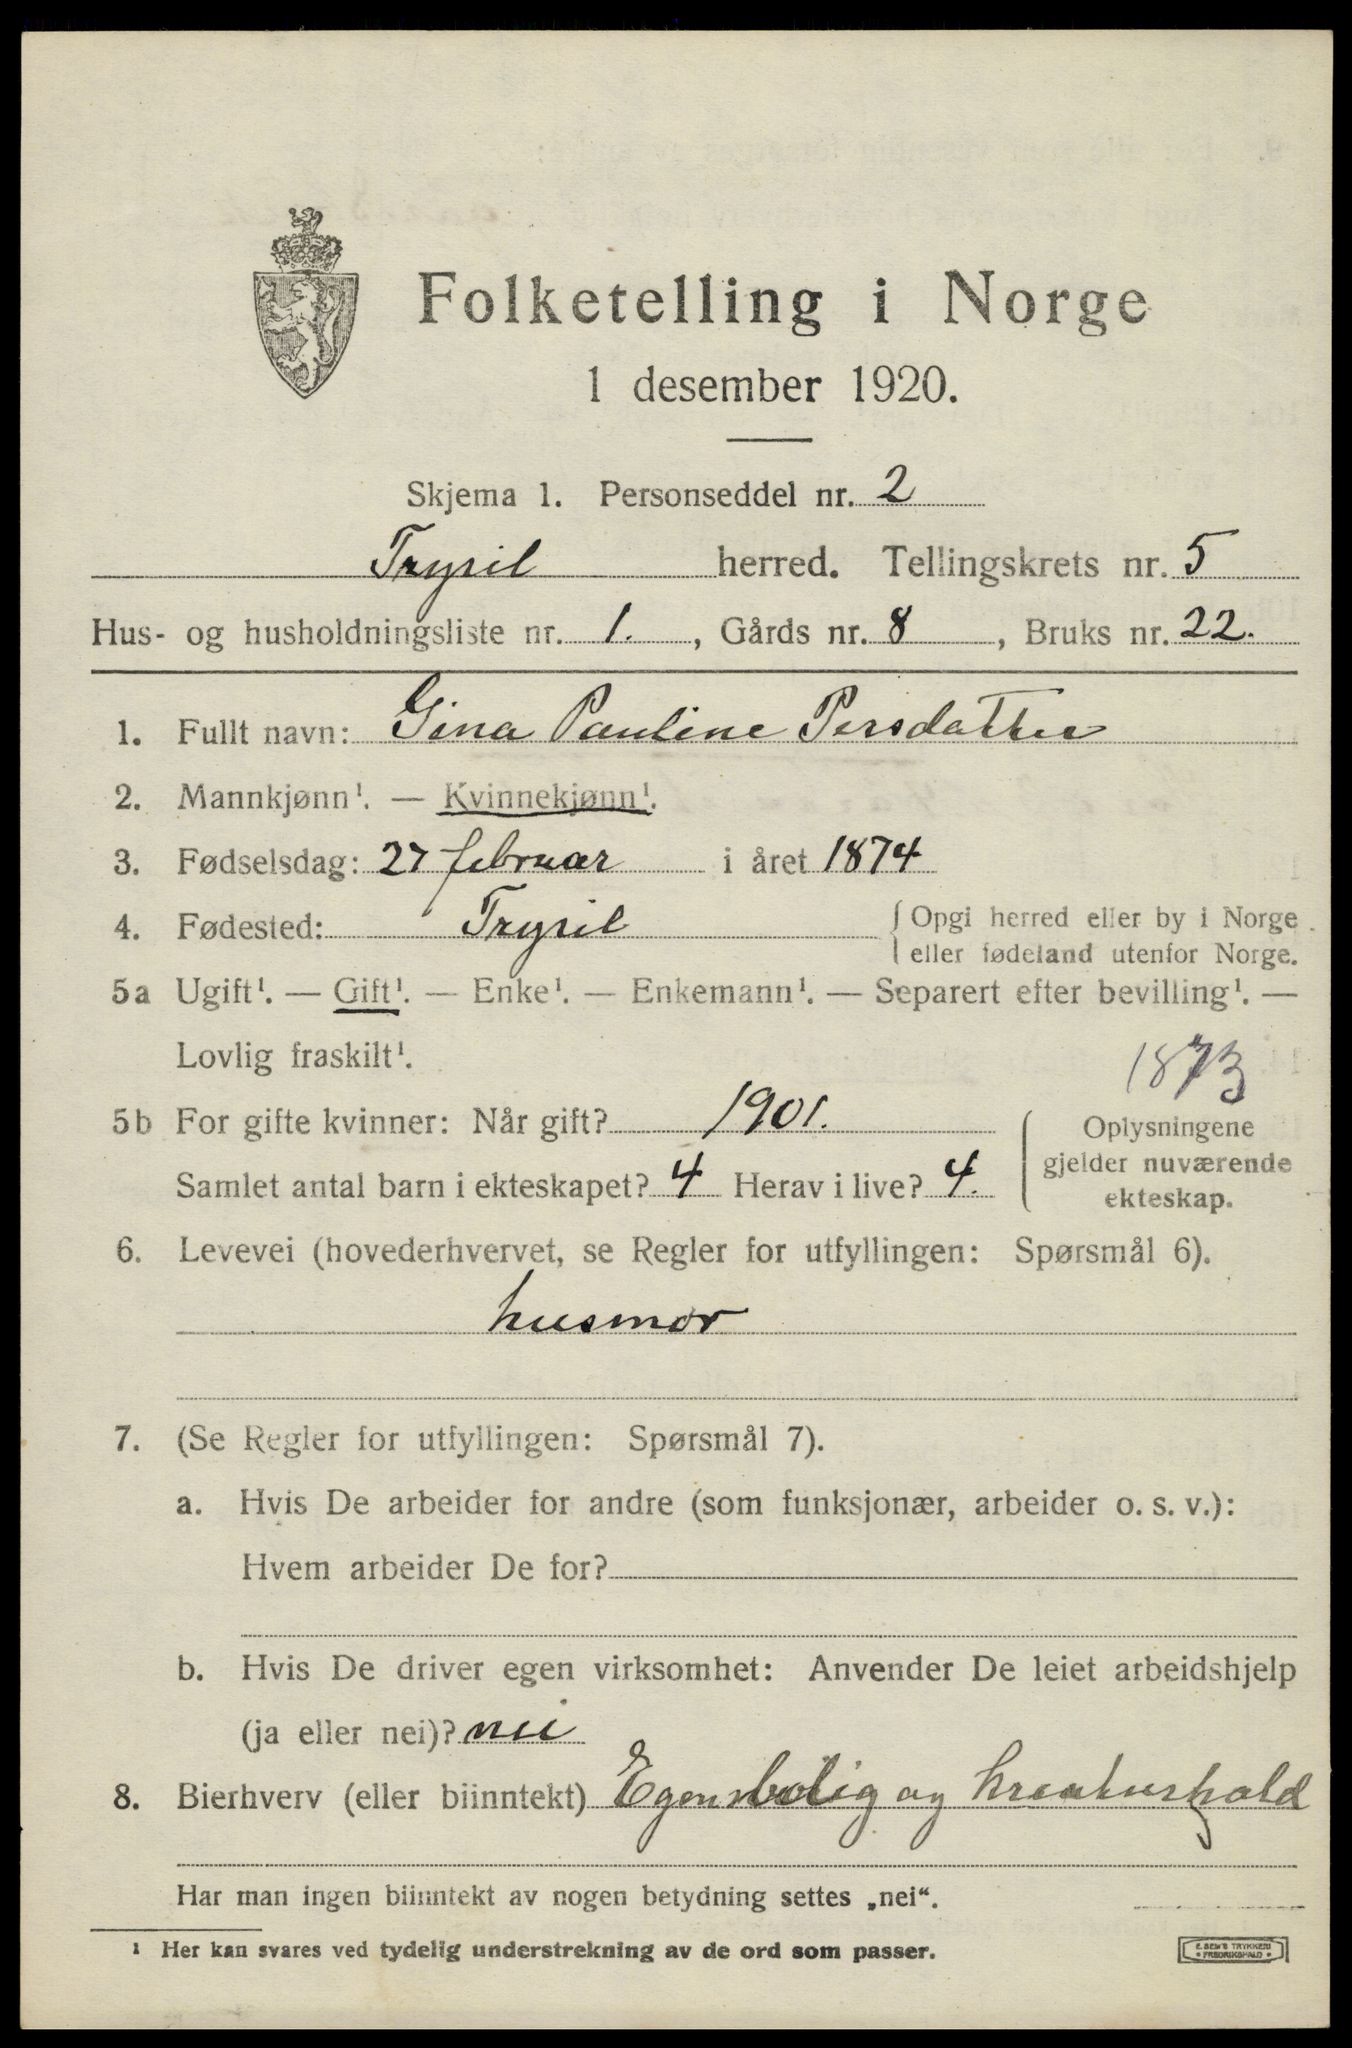 Folketelling i Norge
1 desember 1920.
Skjema 1. Personseddel nr. 2
Trysil herred. Tellingskrets nr. 5
Hus- og husholdningsliste nr. 1. , Gårds nr. 8 , Bruks nr. 22.
1. Fullt navn: Gina Pauline Persdatter
2. Mannkjønn¹. — Kvinnekjønn¹.
3. Fødselsdag: 27 februar i året 1874
4. Fødested: Trysil { Opgi herred eller by i Norge
eller fødeland utenfor Norge.
5a Ugift¹. — Gift¹. — Enke¹. — Enkemann¹. — Separert efter bevilling¹. —
Lovlig fraskilt¹.
1873
5b For gifte kvinner: Når gift? 1901.
Samlet antal barn i ekteskapet? 4 Herav i live? 4.
Oplysningene
gjelder nuværende
ekteskap.
6. Levevei (hovederhvervet, se Regler for utfyllingen: Spørsmål 6).
husmor
7. (Se Regler for utfyllingen: Spørsmål 7).
a. Hvis De arbeider for andre (som funksjonær, arbeider o. s. v.):
Hvem arbeider De for?
b. Hvis De driver egen virksomhet: Anvender De leiet arbeidshjelp
(ja eller nei)? nei
8. Bierhverv (eller biinntekt) Egen bolig og kreaturhold
Har man ingen biinntekt av nogen betydning settes „nei“.
¹ Her kan svares ved tydelig understrekning av de ord som passer.
E. SEM'S TRYKKERI
• FREDRIKSHALD •